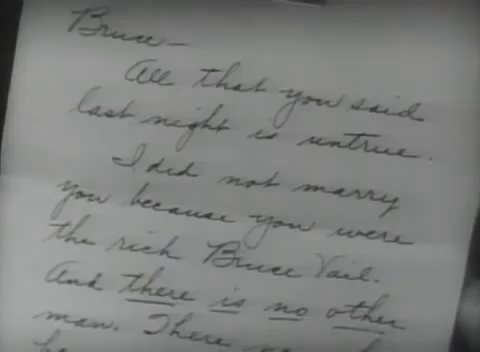 Bruce—
All that you said
last night is untrue.
I did not marry
you because you were
the rich Bruce Vail.
And there is no other
man. There